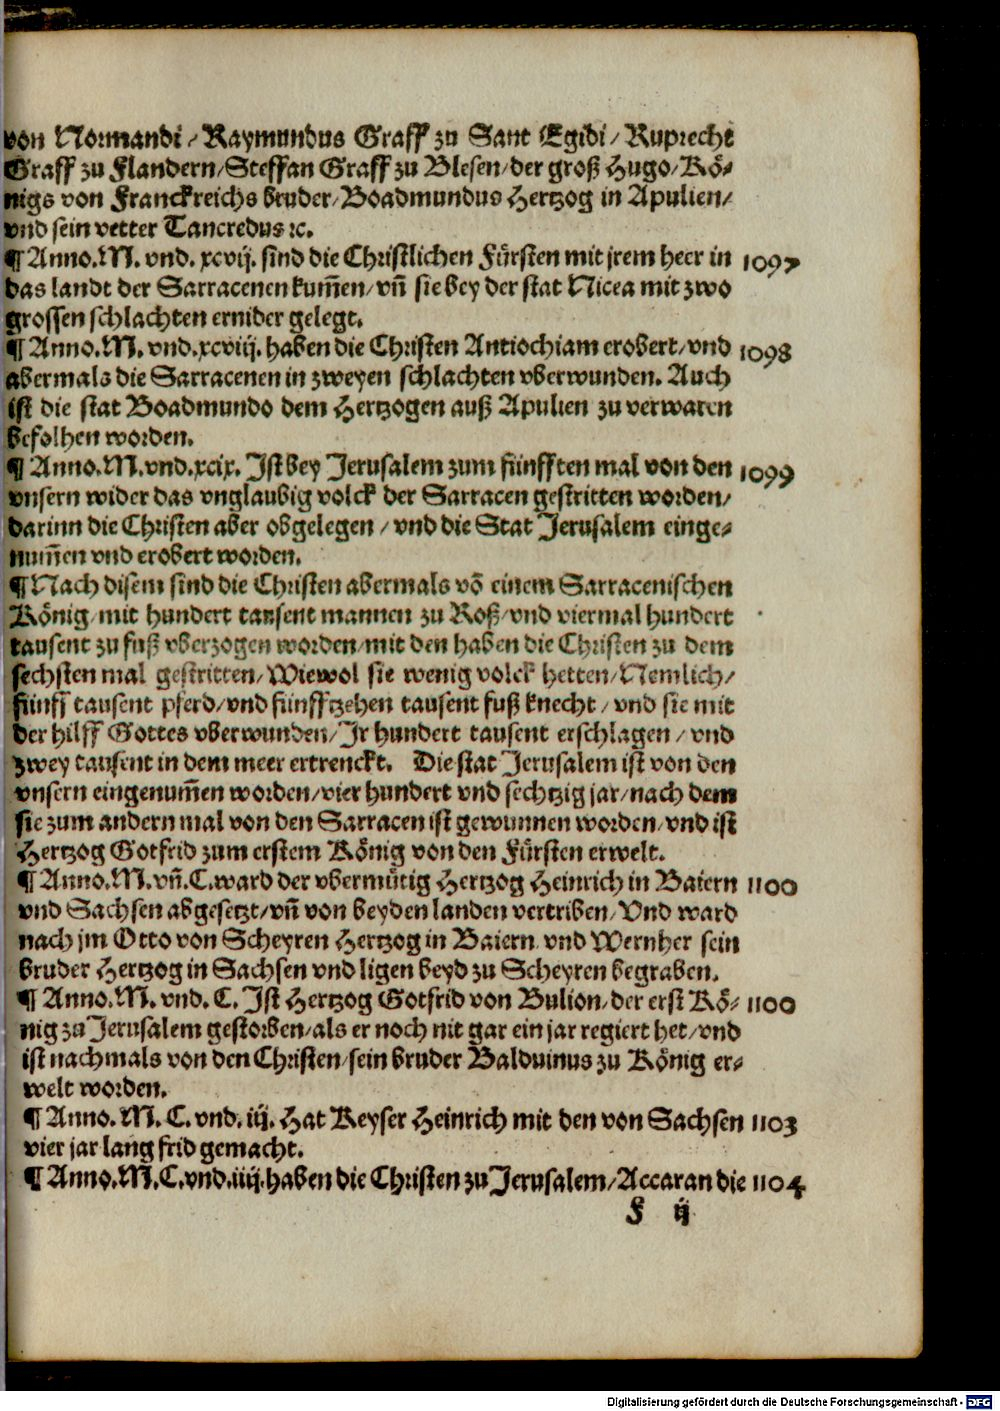 von Normandi / Raymundus Graff zu Sant Egidi / Ruprecht
Graff zu Flandern / Steffan Graff zu Blesen / der groß Hugo / Kö⸗
nigs von Franckreichs bruder / Boadmundus Hertzog in Apulien /
vnd sein vetter Tancredus ꝛc.
¶ Anno. M. vnd. xcvij. sind die Christlichen Fürsten mit jrem heer in 1097
das landt der Sarracenen kum̄en / vn̄ sie bey der stat Nicea mit zwo
grossen schlachten ernider gelegt.
¶ Anno. M. vnd. xcviij. haben die Christen Antiochiam erobert / vnd 1098
abermals die Sarracenen in zweyen schlachten vberwunden. Auch
ist die stat Boadmundo dem Hertzogen auß Apulien zu verwaren
befolhen worden.
¶ Anno. M. vnd. xcix. Ist bey Jerusalem zum fünfften mal von den 1099
vnsern wider das vnglaubig volck der Sarracen gestritten worden /
darinn die Christen aber obgelegen / vnd die Stat Jerusalem einge⸗
num̄en vnd erobert worden.
¶ Nach disem sind die Christen abermals vō einem Sarracenischen
König / mit hundert tausent mannen zu Roß / vnd viermal hundert
tausent zu fuß vberzogen worden / mit den haben die Christen zu dem
sechsten mal gestritten / Wiewol sie wenig volck hetten / Nemlich /
fünff tausent pferd / vnd fünfftzehen tausent fuß knecht / vnd sie mit
der hilff Gottes vberwunden / Jr hundert tausent erschlagen / vnd
zwey tausent in dem meer ertrenckt. Die stat Jerusalem ist von den
vnsern eingenum̄en worden / vier hundert vnd sechtzig jar / nach dem
sie zum andern mal von den Sarracen ist gewunnen worden / vnd ist
Hertzog Gotfrid zum erstem König von den Fürsten erwelt.
¶ Anno. M. vn̄. C. ward der vbermütig Hertzog Heinrich in Baiern 1100
vnd Sachsen abgesetzt / vn̄ von beyden landen vertriben / Vnd ward
nach jm Otto von Scheyren Hertzog in Baiern vnd Wernher sein
bruder Hertzog in Sachsen vnd ligen beyd zu Scheyren begraben.
¶ Anno. M. vnd. C. Ist Hertzog Gotfrid von Bulion / der erst Kö⸗ 1100
nig zu Jerusalem gestorben / als er noch nit gar ein jar regiert het / vnd
ist nachmals von den Christen / sein bruder Balduinus zu König er⸗
welt worden.
¶ Anno. M. C. vnd. iij. Hat Keyser Heinrich mit den von Sachsen 1103
vier jar lang frid gemacht.
¶ Anno. M. C. vnd. iiij. haben die Christen zu Jerusalem / Accaran die 1104
F ij
Digitalisierung gefördert durch die Deutsche Forschungsgemeinschaft - DFG